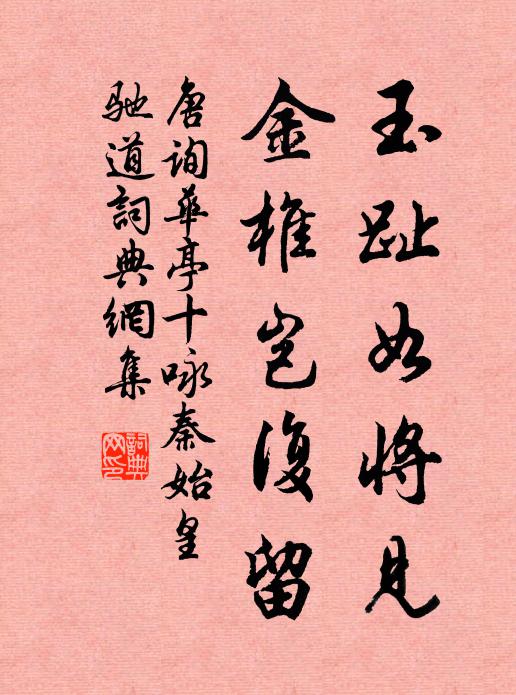 玉趾如將見
金椎豈復留
唐詢華亭十咏秦始皇
馳道詞典網集
詞典
网印